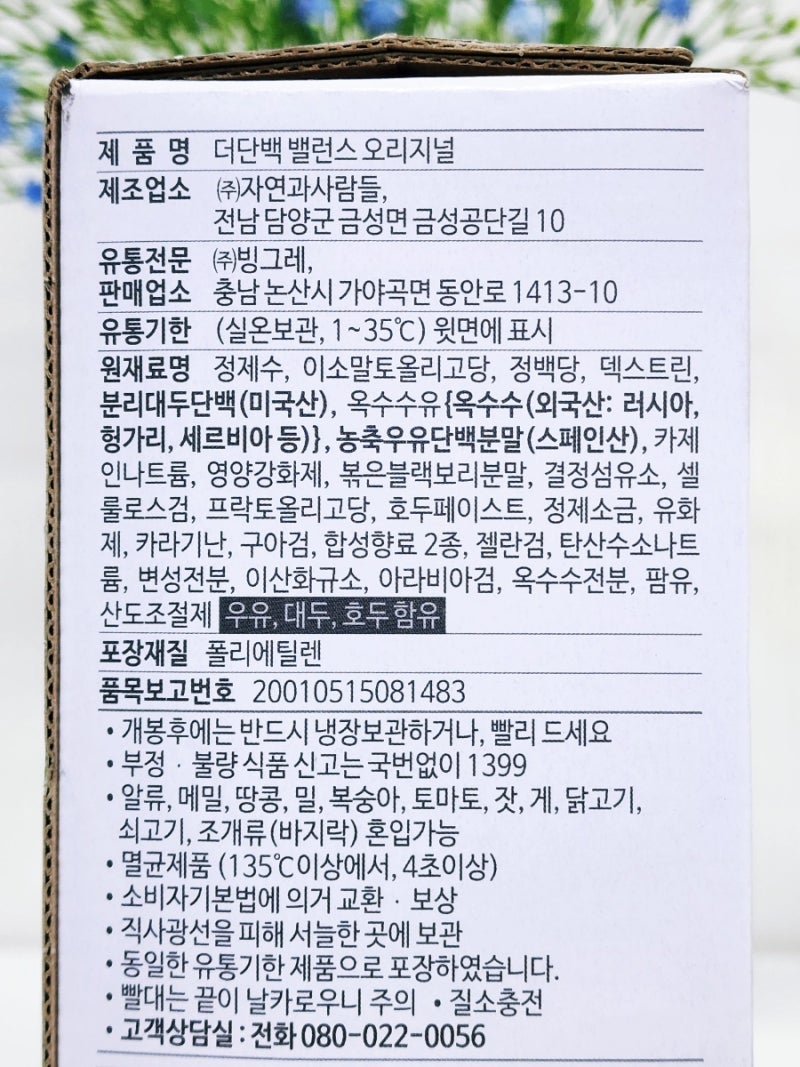 제 품 명 더단백 밸런스 오리지널
제조업소 ㈜자연과사람들,
전남 담양군 금성면 금성공단길 10
유통전문 ㈜빙그레,
판매업소 충남 논산시 가야곡면 동안로 1413-10
유통기한 (실온보관, 1~35℃) 윗면에 표시
원재료명 정제수, 이소말토올리고당, 정백당, 덱스트린,
분리대두단백(미국산), 옥수수유{옥수수(외국산: 러시아,
헝가리, 세르비아 등)}, 농축우유단백분말(스페인산), 카제
인나트륨, 영양강화제, 볶은블랙보리분말, 결정섬유소, 셀
룰로스검, 프락토올리고당, 호두페이스트, 정제소금, 유화
제, 카라기난, 구아검, 합성향료 2종, 젤란검, 탄산수소나트
륨, 변성전분, 이산화규소, 아라비아검, 옥수수전분, 팜유,
산도조절제 우유, 대두, 호두 함유
포장재질 폴리에틸렌
품목보고번호 20010515081483
• 개봉후에는 반드시 냉장보관하거나, 빨리 드세요
• 부정 · 불량 식품 신고는 국번없이 1399
• 알류, 메밀, 땅콩, 밀, 복숭아, 토마토, 잣, 게, 닭고기,
쇠고기, 조개류(바지락) 혼입가능
• 멸균제품 (135℃이상에서, 4초이상)
• 소비자기본법에 의거 교환 · 보상
• 직사광선을 피해 서늘한 곳에 보관
• 동일한 유통기한 제품으로 포장하였습니다.
• 빨대는 끝이 날카로우니 주의 • 질소충전
• 고객상담실 : 전화 080-022-0056